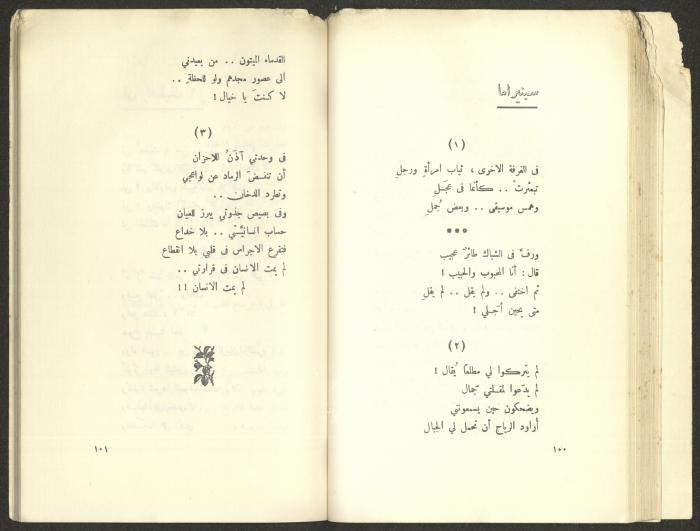 سينيراما
(١)
فى الغرفة الاخرى ، ثياب امرأةٍ ورجلِ
تبعثرتْ .. كأنما فى عجَلِ
وهمس موسيقى .. وبعض جُملِ
•••
ورفّ فى الشباك طائرٌ عجيب
قال : أنا المحبوب والحبيب !
ثم اختفى .. ولم يقل .. لم يقلِ
متى يحين أجلي !
(٢)
لم يتركوا لي مطلعًا يُقال !
لم يدّعوا لمقلتي جمال
ويضحكون حين يسمعونني
أراود الرياح أن تحمل لي الجبال
١٠٠
القدماء الميتون .. من يعيدني
الى عصور مجدهم ولو للحظة ..
لا كنتَ يا خيال !
(٣)
فى وحدتي آذَنُ للاحزان
أن تنفضَ الرماد عن لواعجي
وتطرد الدخان ..
وفى بصيص جذوتي يبرز للعيان
حساب انسانيّتي .. بلا خداع
فتقرع الاجراس فى قلبي بلا انقطاع
لم يمت الانسان فى قرارتي ..
لم يمت الانسان !!
١٠١